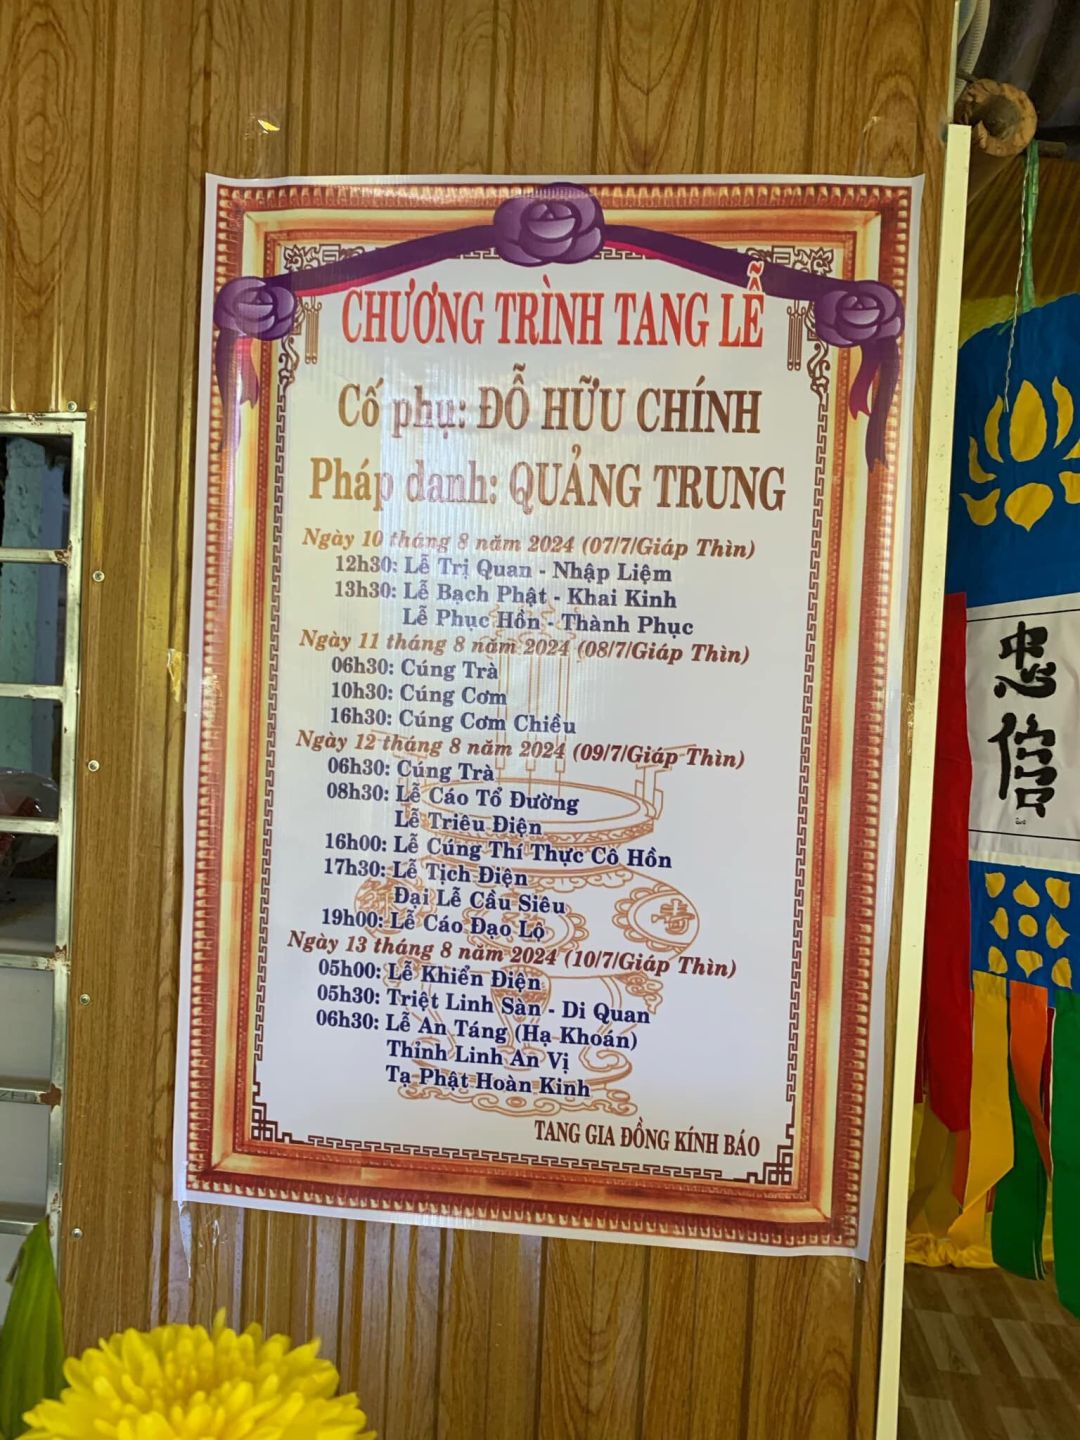 CHƯƠNG TRÌNH TANG LỄ
Cố phụ: ĐỖ HỮU CHÍNH
Pháp danh: QUẢNG TRUNG
Ngày 10 tháng 8 năm 2024 (07/7/Giáp Thìn)
12h30: Lễ Trị Quan - Nhập Liệm
13h30: Lễ Bạch Phật - Khai Kinh
Lễ Phục Hồn - Thành Phục
Ngày 11 tháng 8 năm 2024 (08/7/Giáp Thìn)
06h30: Cúng Trà
10h30: Cúng Cơm
16h30: Cúng Cơm Chiều
Ngày 12 tháng 8 năm 2024 (09/7/Giáp Thìn)
06h30: Cúng Trà
08h30: Lễ Cáo Tổ Đường
Lễ Triêu Điện
16h00: Lễ Cúng Thí Thực Cô Hồn
17h30: Lễ Tịch Điện
Đại Lễ Cầu Siêu
19h00: Lễ Cáo Đạo Lộ
Ngày 13 tháng 8 năm 2024 (10/7/Giáp Thìn)
05h00: Lễ Khiển Điện
05h30: Triệt Linh Sàn - Di Quan
06h30: Lễ An Táng (Hạ Khoán)
Thỉnh Linh An Vị
Tạ Phật Hoàn Kinh
TANG GIA ĐỒNG KÍNH BÁO
忠
信